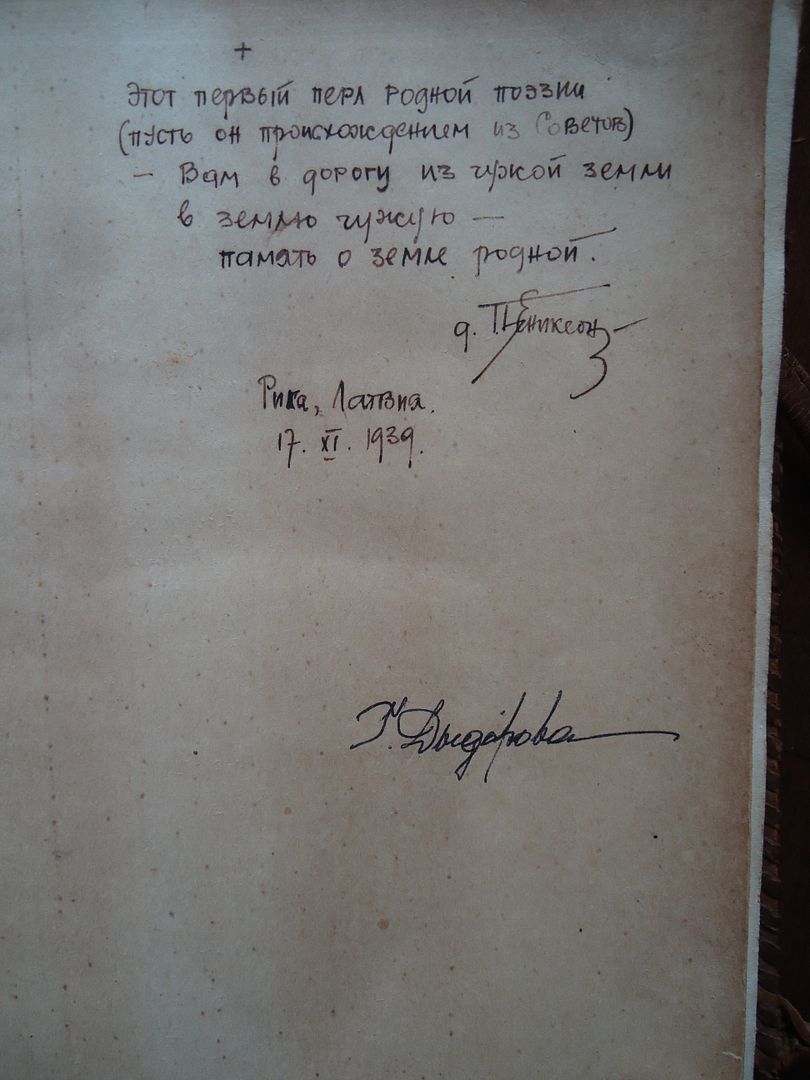 +
Этот первый перл родной поэзии
(пусть он происхождением из Советов)
— Вам в дорогу из чужой земли
в землю чужую —
память о земле родной.
д.
Рига, Латвия.
17. XI. 1939.
Дыдорова